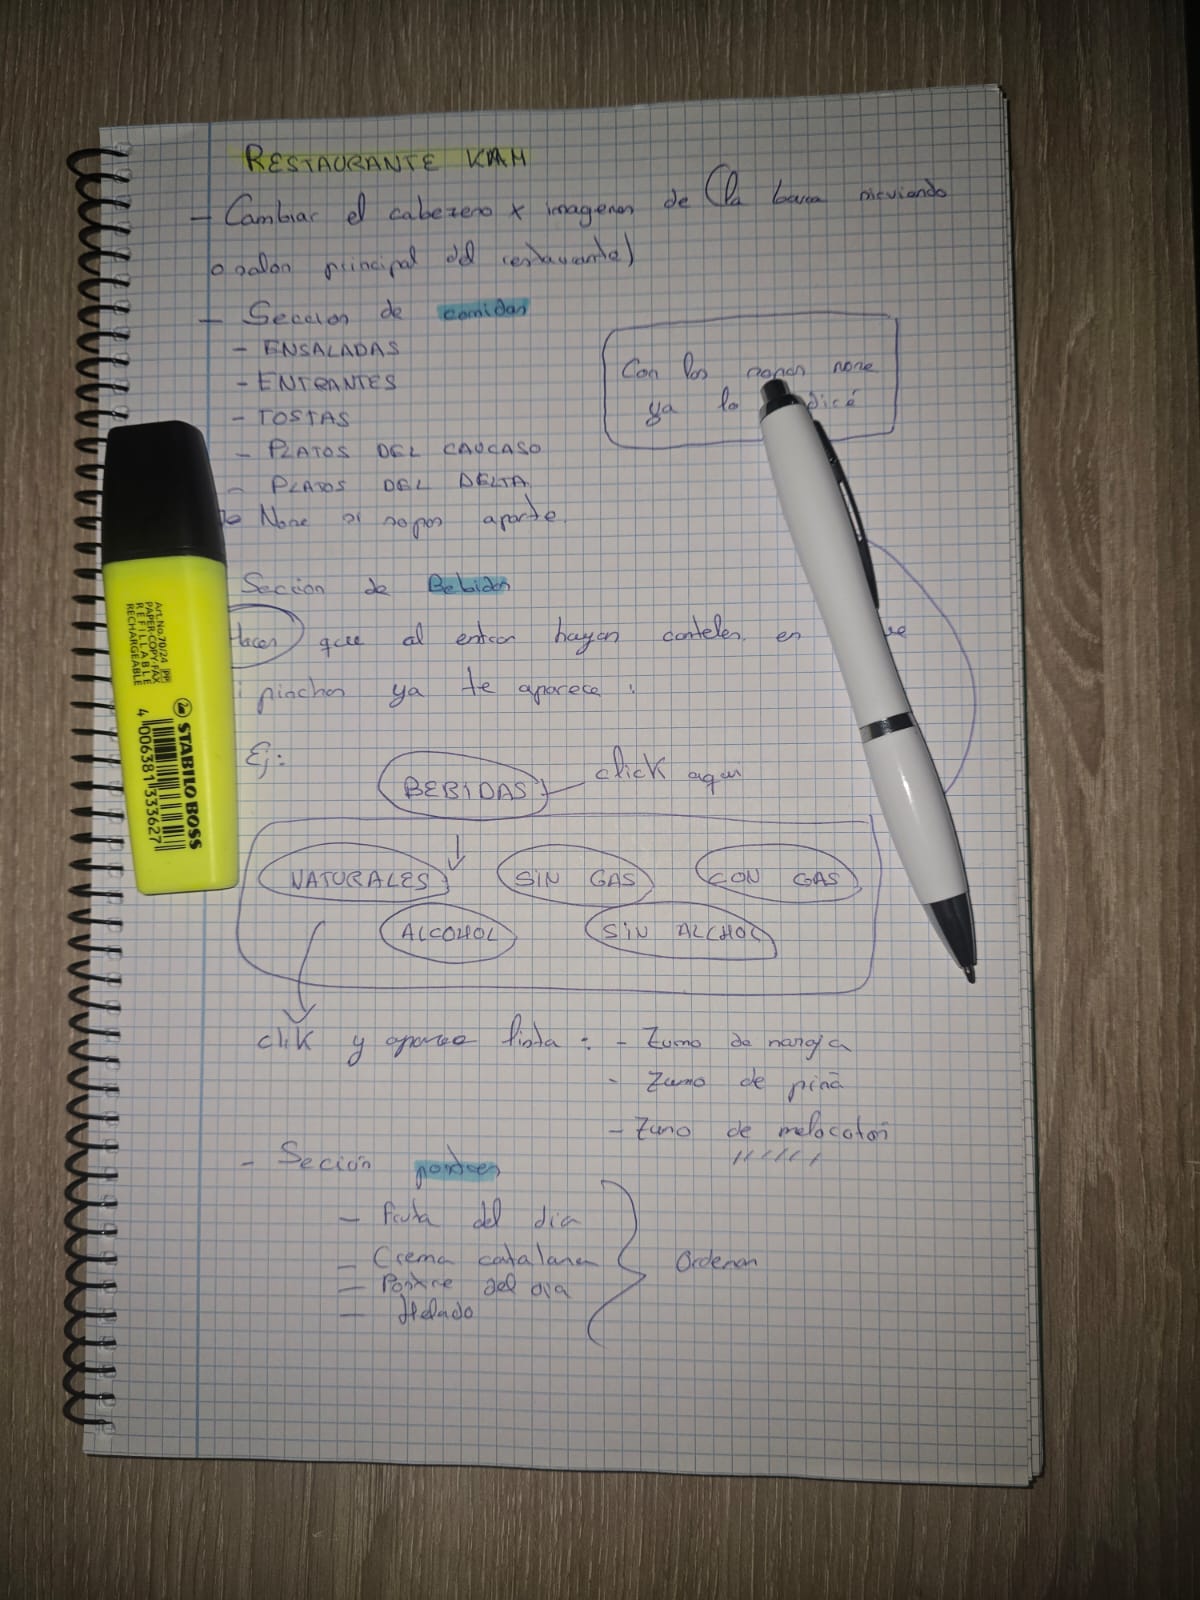 RESTAURANTE KAH
- Cambiar el cabezero x imagenes de (la barra
o salon principal del restaurante)
- Sección de comidas
- ENSALADAS
- ENTRANTES
- TOSTAS
- PLATOS DEL CAUCASO
- PLATOS DEL DELTA
No se si sopas aparte.
Con las sopas nose
ya lo dicé
Sección de Bebidas
Hacer que al entrar hayan carteles en
pinchas ya te aparece :
Ej:
BEBIDAS click aqui
NATURALES SIN GAS CON GAS
ALCOHOL SIN ALCHOL
clik y aparece lista : - Zumo de naraja
- Zumo de piña
- Zumo de melocoton
- Seción postres
- Fruta del dia
- Crema catalana
- Postre del dia
- Helado
Ordenar
STABILO BOSS
Art.No.70/24
PAPER-COPY-FAX
REFILLABLE
RECHARGEABLE
4 006381 333627